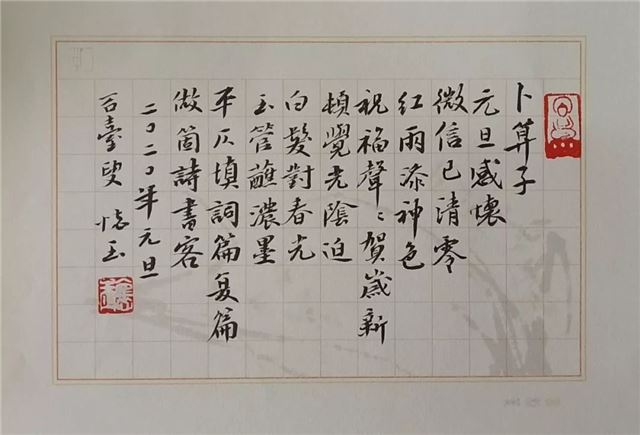 卜算子
元旦感懷
微信已清零
紅雨添神色
祝福聲〻賀歲新
頓覺光陰迫
白髮對春光
玉管蘸濃墨
平仄填詞篇复篇
做箇詩書客
二〇二〇年元旦
百臺叟 懷玉